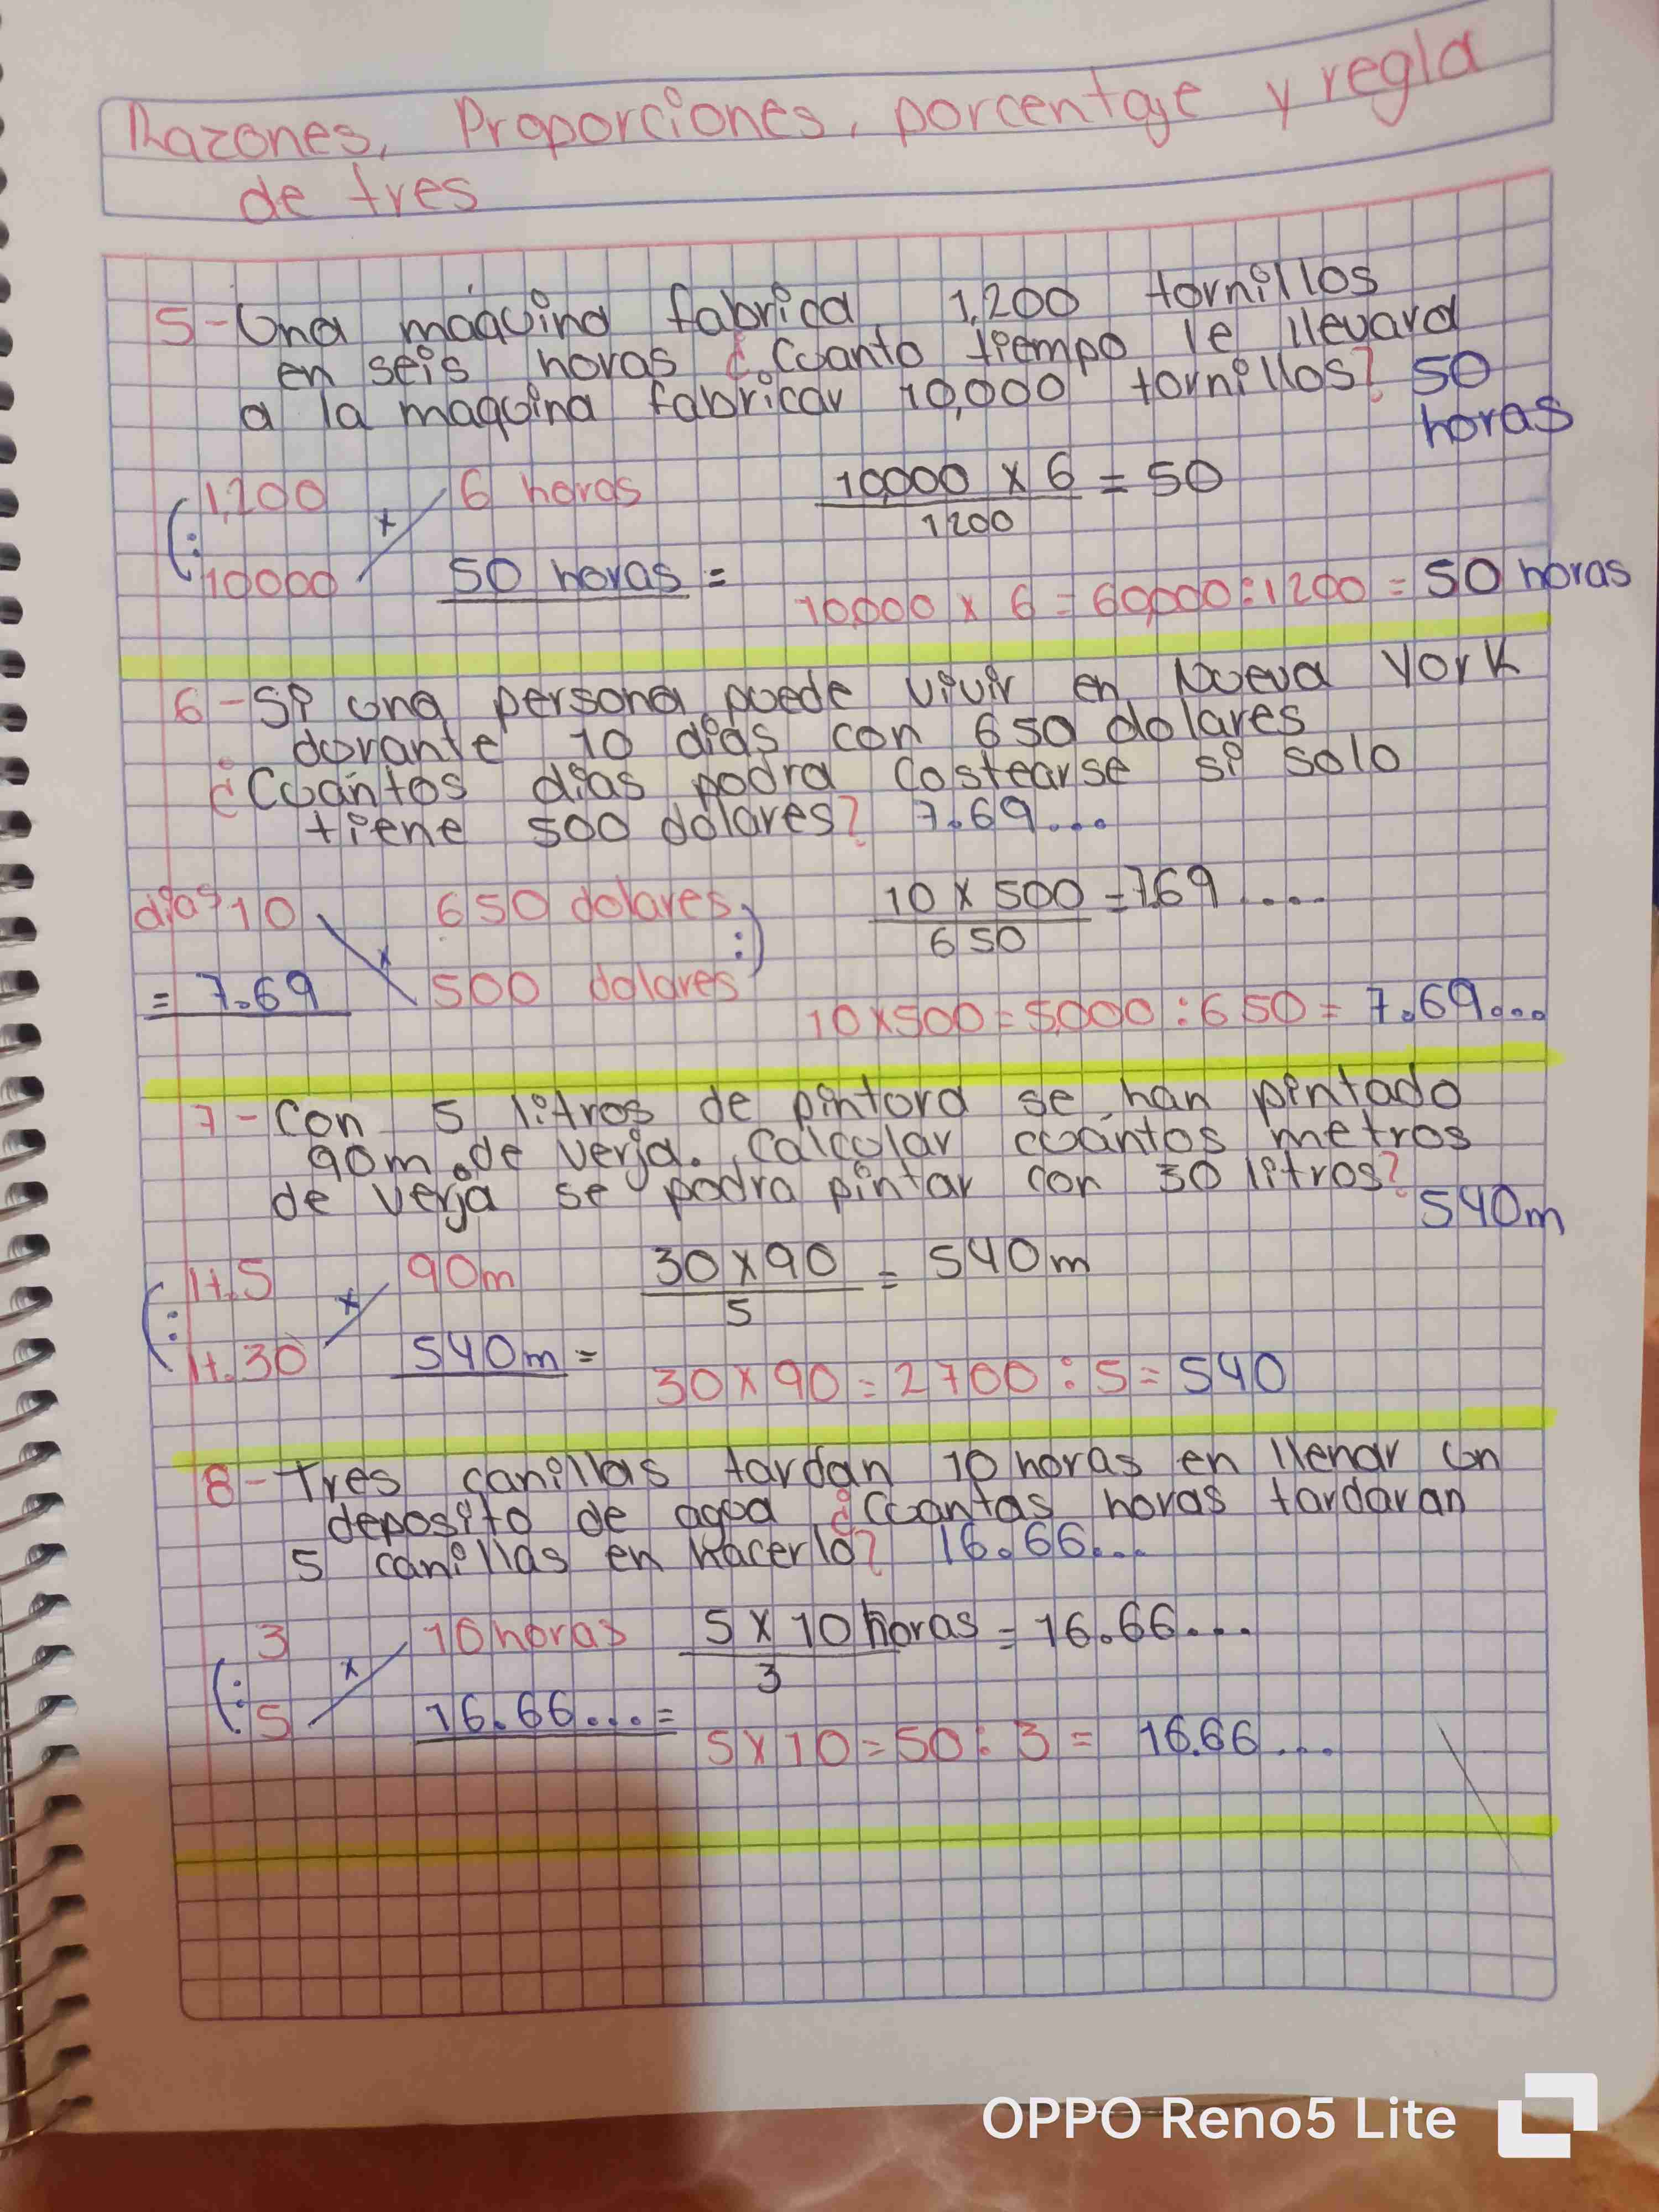 Razones, Proporciones, porcentaje y regla
de tres
5- Una máquina fabrica 1,200 tornillos
en seis horas ¿Cuanto tiempo le llevara
a la maquina fabricar 10,000 tornillos? 50
horas
1,200 6 horas 10,000 x 6 = 50
(: x 1200
10000 50 horas =
10,000 x 6 = 60,000:1200 = 50 horas
6- Si una persona puede vivir en Nueva York
durante 10 dias con 650 dolares
¿Cuántos dias podra costearse si solo
tiene 500 dolares? 7.69...
dias 10 650 dolares 10 x 500 = 7.69 ....
x :) 650
= 7.69 500 dolares
10x500=5000:650= 7.69...
7- Con 5 litros de pintura se han pintado
90m de verja. Calcular cuántos metros
de verja se podra pintar con 30 litros?
540m
lt.5 90m 30 x 90 = 540m
(: x 5
lt.30 540m =
30 x 90 = 2700 : 5 = 540
8- Tres canillas tardan 10 horas en llenar un
deposito de agua ¿Cuantas horas tardaran
5 canillas en hacerlo? 16.66...
3 10 horas 5 x 10 horas = 16.66...
(: x 3
5 16.66... =
5 x 10 = 50 : 3 = 16.66 ...
OPPO Reno5 Lite